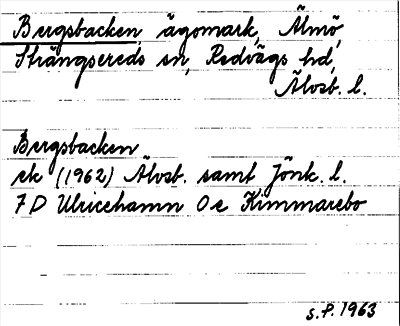 Bergsbacken, ägomark, Älmö,
Strängsereds sn, Redvägs hd,
Älvsb. l.
Bergsbacken
ek (1962) Älvsb. samt Jönk. l.
7 D Ulricehamn 0 e Kimmarebo
S.P. 1963